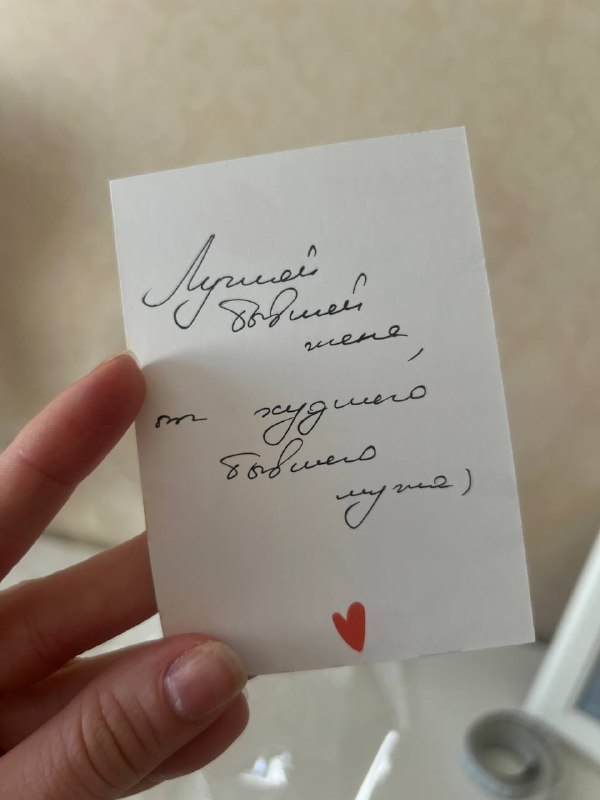 Лучшей
бывшей
жене,
от худшего
бывшего
мужа)